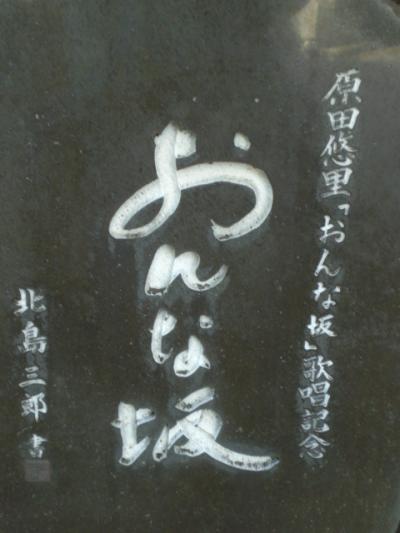 原田悠里「おんな坂」歌唱記念
おんな坂
北島三郎書